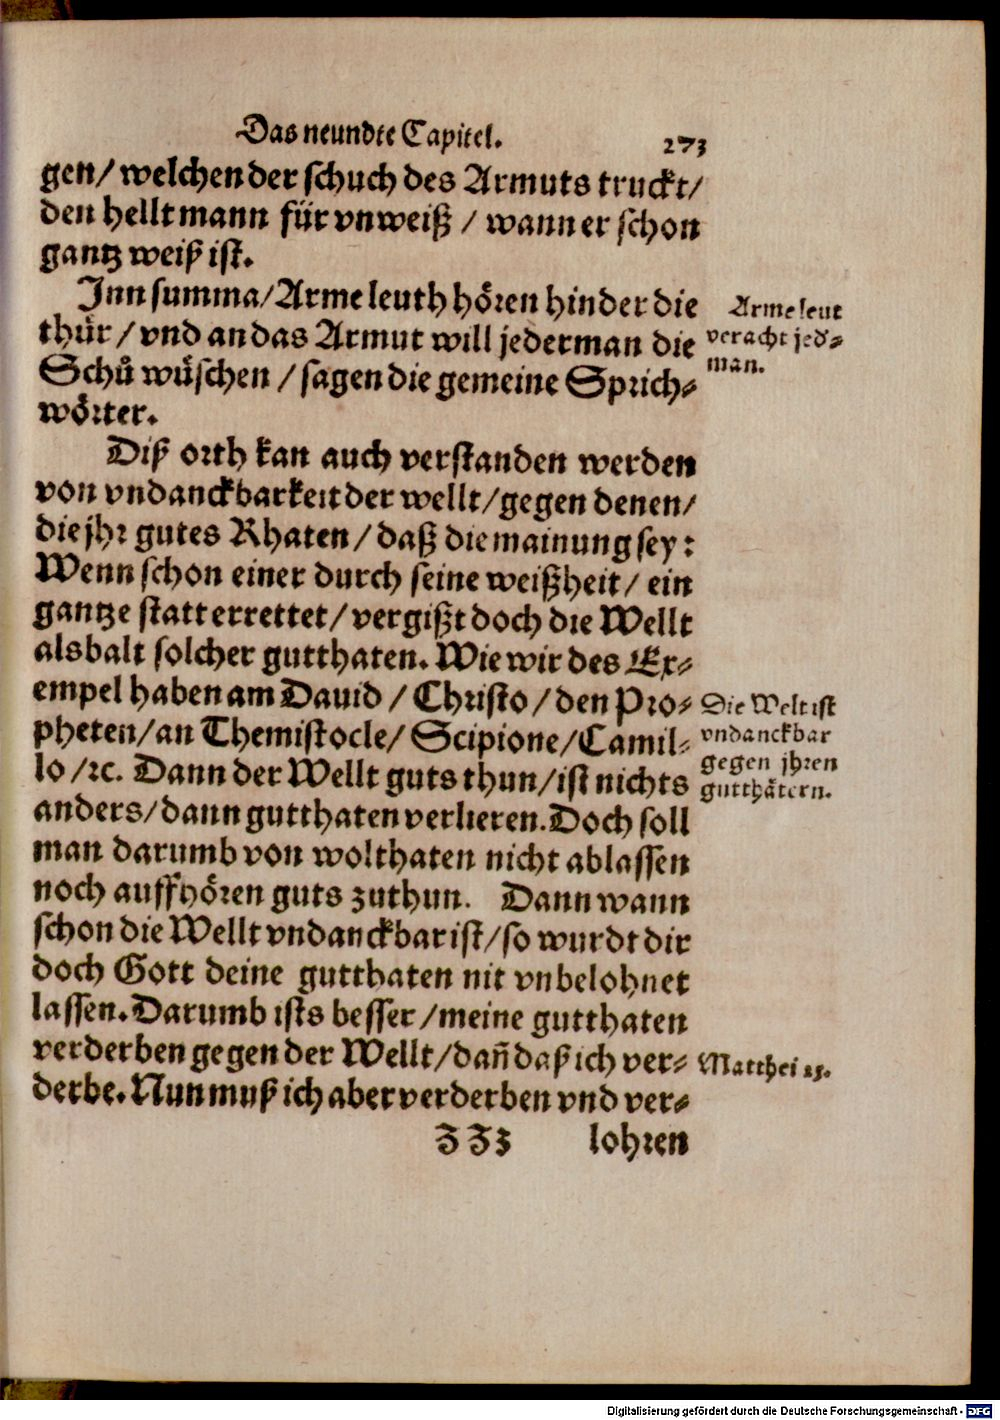 Das neundte Capitel. 273
gen/ welchen der schuch des Armuts truckt/
den hellt mann für vnweiß / wann er schon
gantz weiß ist.
Inn summa/ Arme leuth hören hinder die
thür / vnd an das Armut will jederman die
Schůl wüschen / sagen die gemeine Sprich-
wörter.
Arme leut
veracht jed-
man.
Diß orth kan auch verstanden werden
von vndanckbarkeit der wellt/ gegen denen/
die jhr gutes Rhaten / daß die mainung sey:
Wenn schon einer durch seine weißheit / ein
gantze statt errettet/ vergißt doch die Wellt
alsbalt solcher gutthaten. Wie wir des Ex-
empel haben am Dauid / Christo / den Pro-
pheten/ an Themistocle/ Scipione/ Camil-
lo /ꝛc. Dann der Wellt guts thun/ ist nichts
anders/ dann gutthaten verlieren. Doch soll
man darumb von wolthaten nicht ablassen
noch auffhören guts zuthun. Dann wann
schon die Wellt vndanckbar ist/ so wurdt dir
doch Gott deine gutthaten nit vnbelohnet
lassen. Darumb ists besser / meine gutthaten
verderben gegen der Wellt/ dañ daß ich ver-
derbe. Nun muß ich aber verderben vnd ver-
Die Welt ist
vndanckbar
gegen jhren
gutthätern.
Matthei 25.
Z Z3 lohren
Digitalisierung gefördert durch die Deutsche Forschungsgemeinschaft - DFG